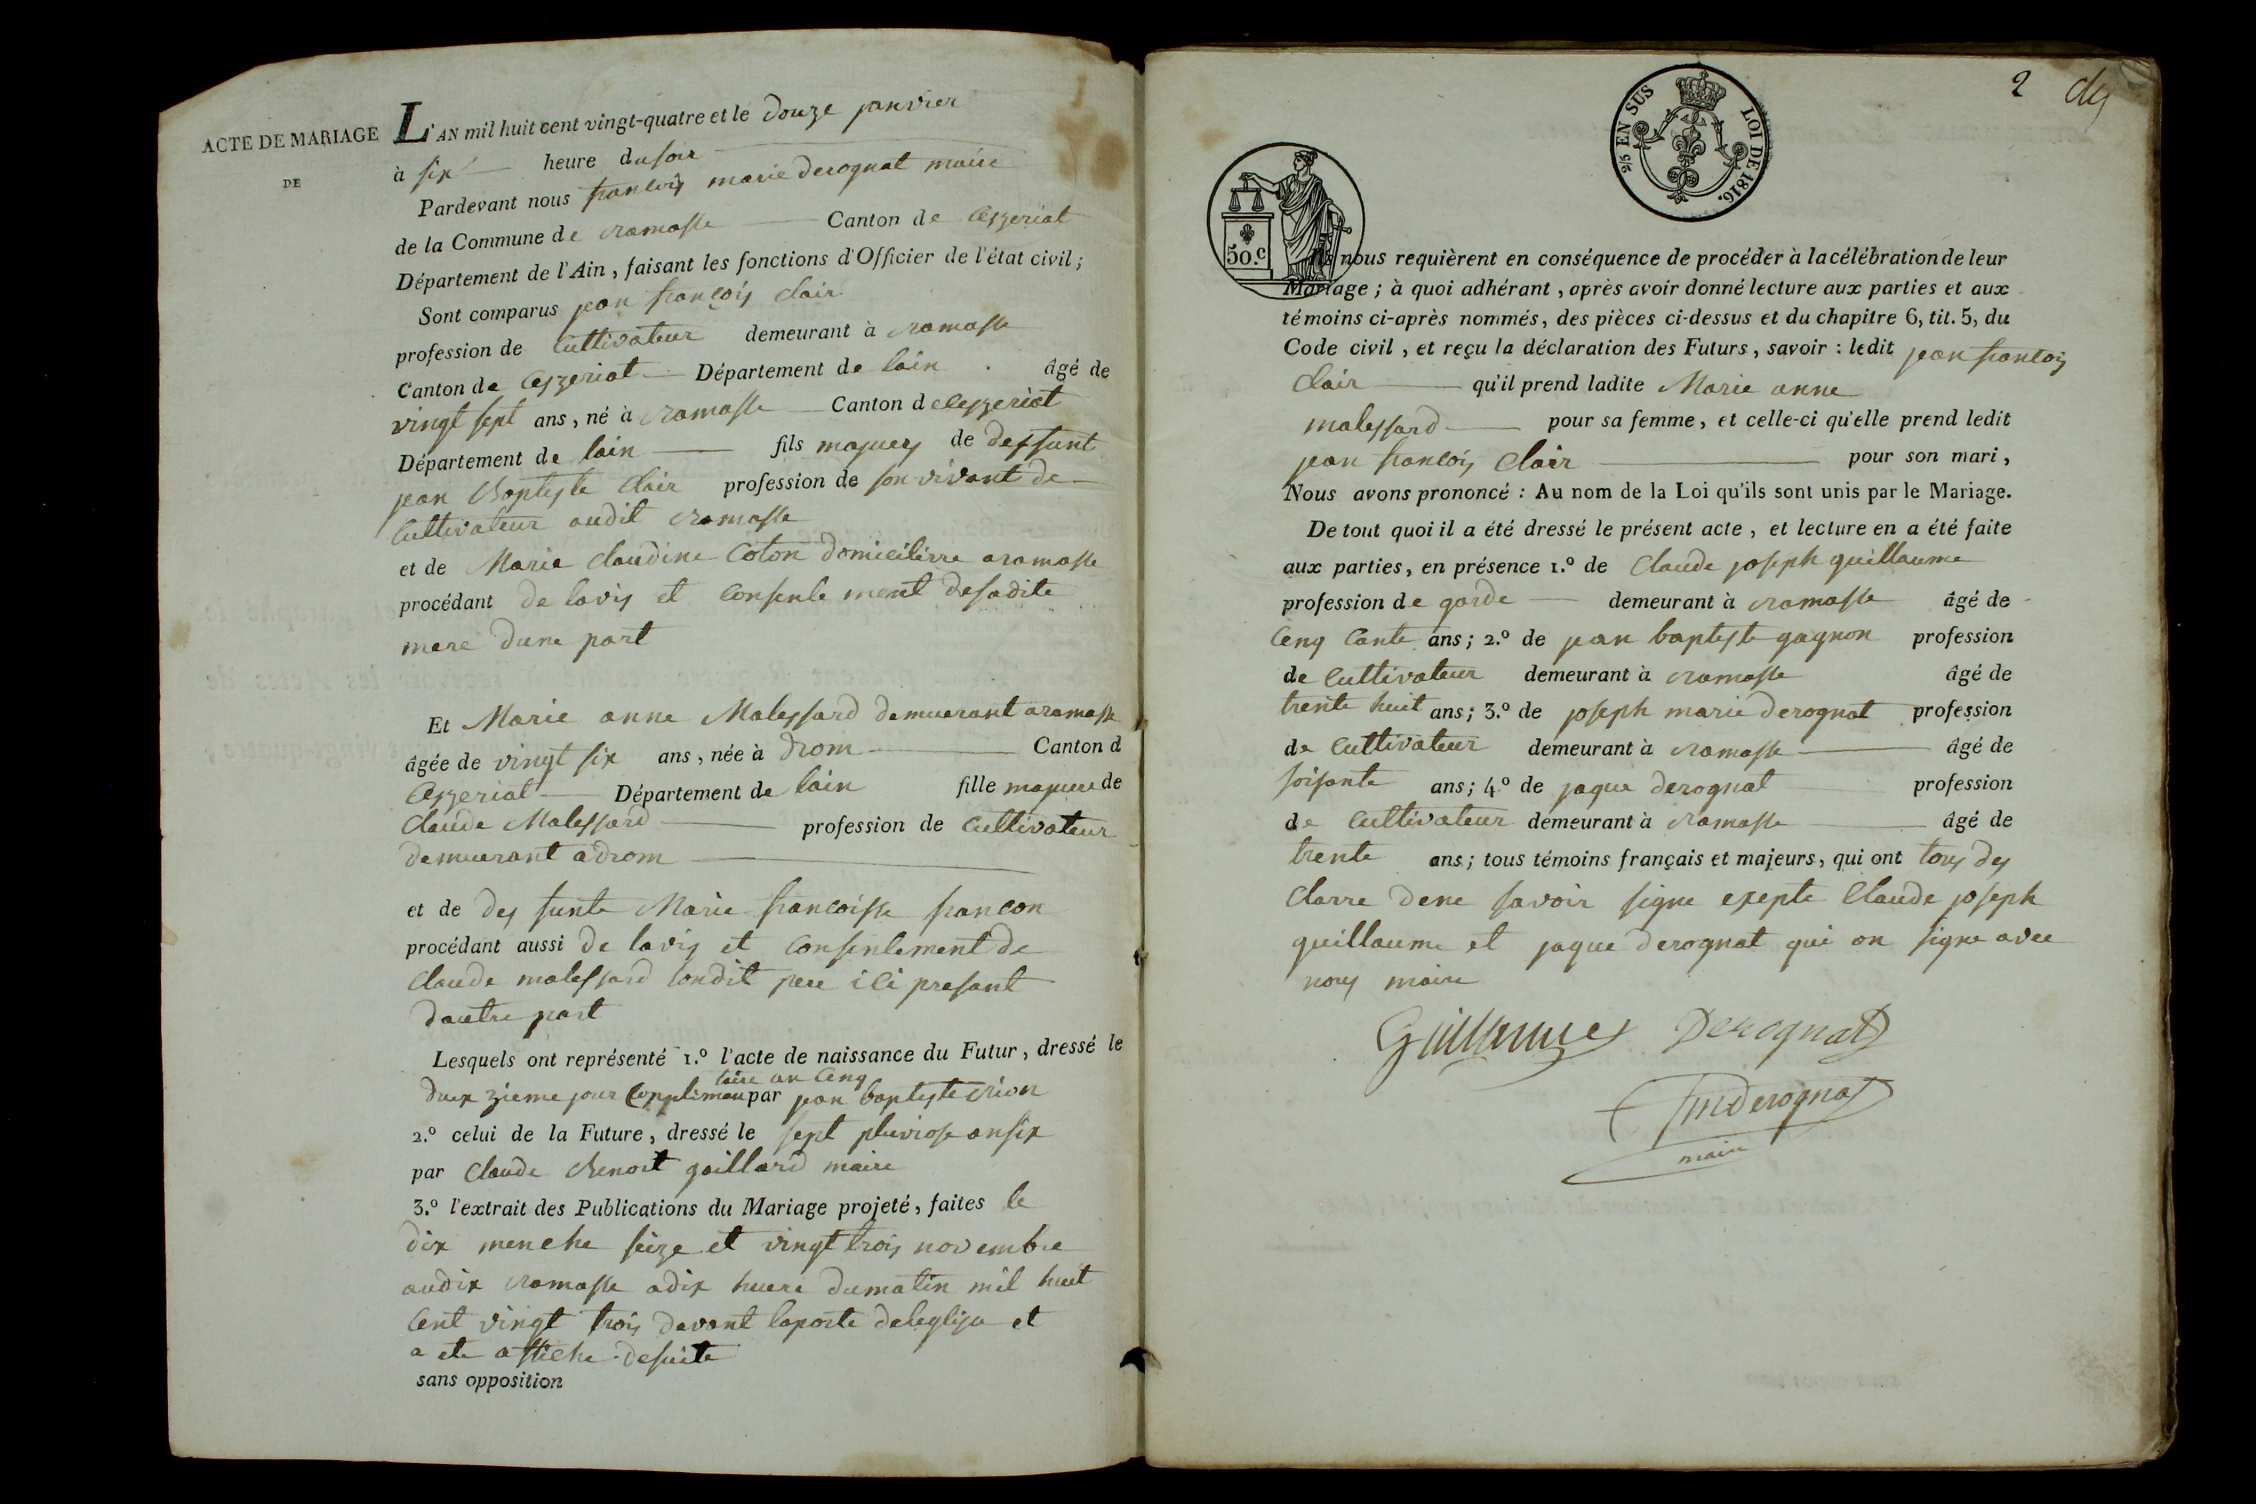 ACTE DE MARIAGE
DE
L'AN mil huit cent vingt-quatre et le douze janvier
à six heure du soir
Pardevant nous francois marie derognat maire
de la Commune de ramasse Canton de Ceyzeriat
Département de l'Ain, faisant les fonctions d'Officier de l'état civil;
Sont comparus jean françois clair
profession de Cultivateur demeurant à ramasse
Canton de Ceyzeriat Département de lain âgé de
vingt sept ans, né à ramasse Canton d eCeyzeriat
Département de lain fils majuers de deffunt
jean Baptiste Clair profession de son vivant de
Cultivateur audit ramasse
et de Marie Claudine Coton domicilirre aramasse
procédant de lavis et Consente ment desadite
mere dune part
Et Marie anne Malessard demuerant aramasse
âgée de vingt six ans, née à drom Canton d
Ceyzeriat Département de lain fille majuere de
Claude Malessard profession de Cultivateur
demuerant adrom
et de def funte Marie francoisse francon
procédant aussi de lavis et Consentement de
Claude malessard sondit pere ici presant
dautre part
Lesquels ont représenté 1.º l'acte de naissance du Futur, dressé le
taire an Cenq
duex zieme jour Complimen par jean baptiste rion
2.º celui de la Future, dressé le sept pluviose ansix
par Claude Benoit gaillard maire
3.º l'extrait des Publications du Mariage projeté, faites le
dix menche seize et vingt trois novembre
audix ramasse adix huere dumatin mil huit
Cent vingt trois devant laporte deleglise et
a ete affiche desuite
sans opposition
2 des
2/5 EN SUS LOI DE 1816.
50.c
Ils nous requièrent en conséquence de procéder à la célébration de leur
Mariage; à quoi adhérant, après avoir donné lecture aux parties et aux
témoins ci-après nommés, des pièces ci-dessus et du chapitre 6, tit. 5, du
Code civil, et reçu la déclaration des Futurs, savoir: ledit jean francois
Clair qu'il prend ladite Marie anne
malessard pour sa femme, et celle-ci qu'elle prend ledit
jean francois Clair pour son mari,
Nous avons prononcé: Au nom de la Loi qu'ils sont unis par le Mariage.
De tout quoi il a été dressé le présent acte, et lecture en a été faite
aux parties, en présence 1.º de Claude joseph guillaume
profession de garde demeurant à ramasse âgé de
Cenq Cante ans; 2.º de jean baptiste gagnon profession
de Cultivateur demeurant à ramasse âgé de
trente huit ans; 3.º de joseph marie derognat profession
de Cultivateur demeurant à ramasse âgé de
soisante ans; 4.º de jaque derognat profession
de Cultivateur demeurant à ramasse âgé de
trente ans; tous témoins français et majeurs, qui ont tous des
Clarre dene savoir signe exepte Claude joseph
guillaume et jaque derognat qui on signe avec
nous maire
Guillaume Derognat
fmderognat
maire